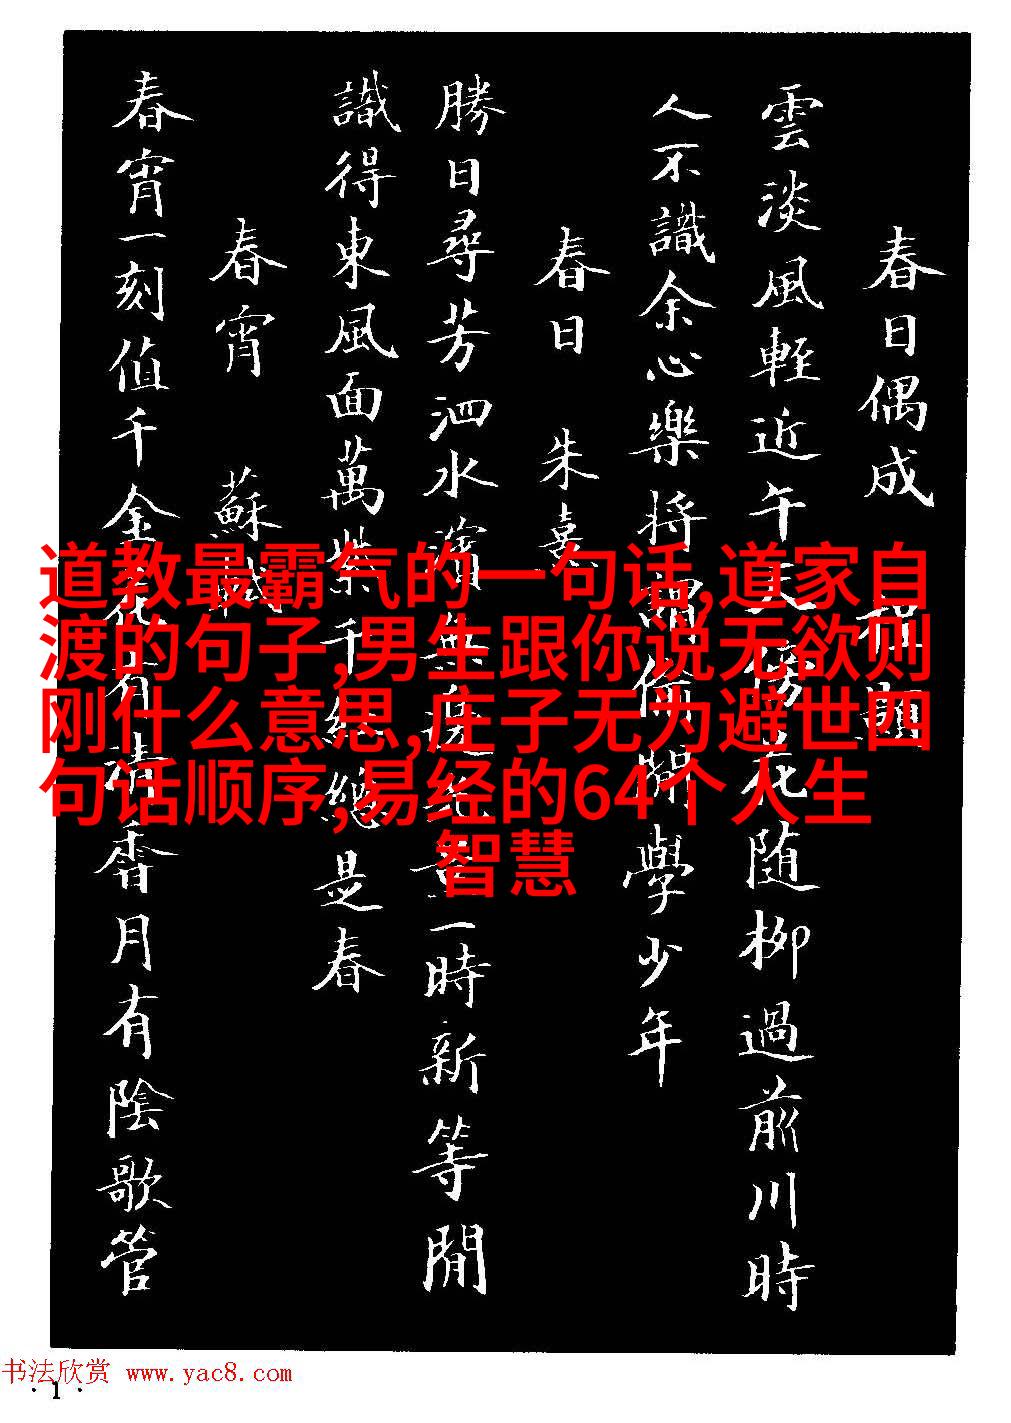 春日偶成 程顥
雲淡風輕近午天傍花随柳過前川時
人不識余心樂將謂偷閒學少年
春日 朱熹
勝日尋芳泗水濱無邊光景一時新等閒
識得東風面萬紫千紅總是春
春宵 蘇軾
春宵一刻值千金花有清香月有陰歌管
道教最霸气的一句话,道家自
渡的句子,男生跟你说无欲则
刚什么意思,庄子无为避世四
句话顺序,易经的64个人生
智慧
书法欣赏 www.yac8.com
·1·